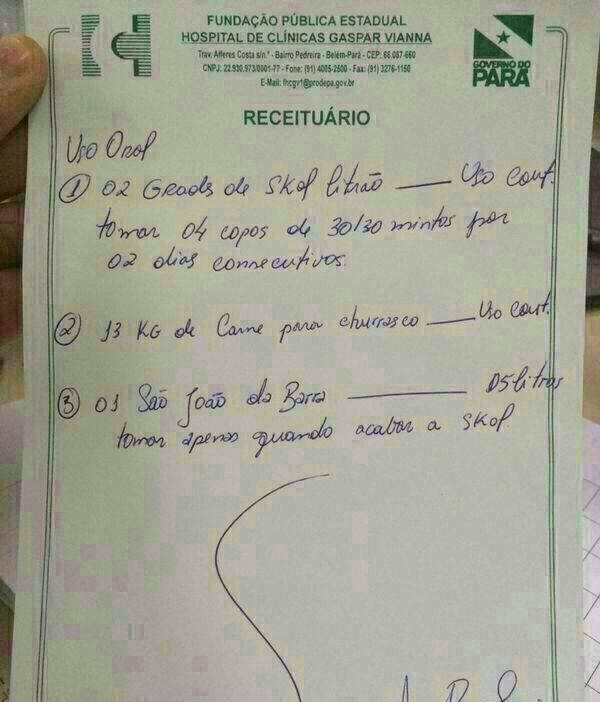 FUNDAÇÃO PÚBLICA ESTADUAL
HOSPITAL DE CLÍNICAS GASPAR VIANNA
Trav. Alferes Costa s/n.º - Bairro Pedreira - Belém-Pará - CEP: 66.087-660
CNPJ: 22.930.973/0001-77 - Fone: (91) 4005-2500 - Fax: (91) 3276-1150
E-Mail: fhcgv1@prodepa.gov.br
GOVERNO DO
PARÁ
RECEITUÁRIO
Uso Oral
① 02 Grades de Skol litrão — Uso cont.
tomar 04 copos de 30/30 mintos por
02 dias consecutivos.
② 13 KG de Carne para churrasco — Uso cont.
③ 01 São João da Barra — 05 litros
tomar apenas quando acabar a Skol.